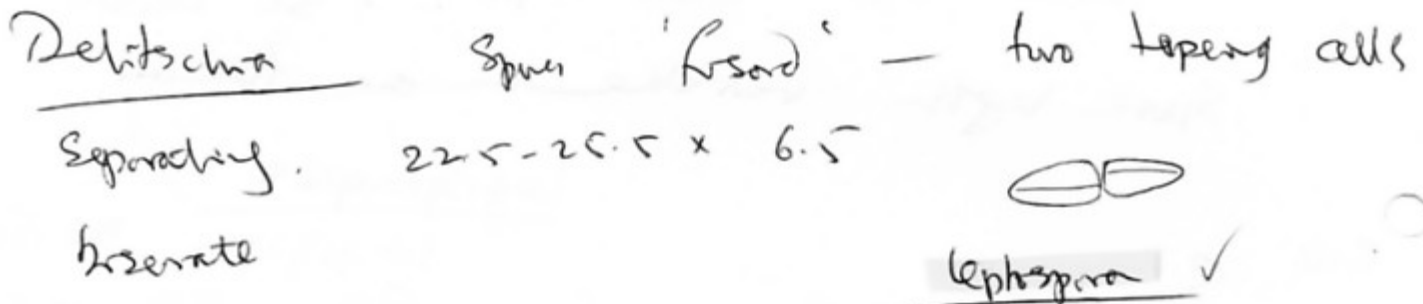 Delitschia Spores 'fusoid' — two tapering cells
Separating. 22.5-25.5 x 6.5
biseriate
leptospora ✓